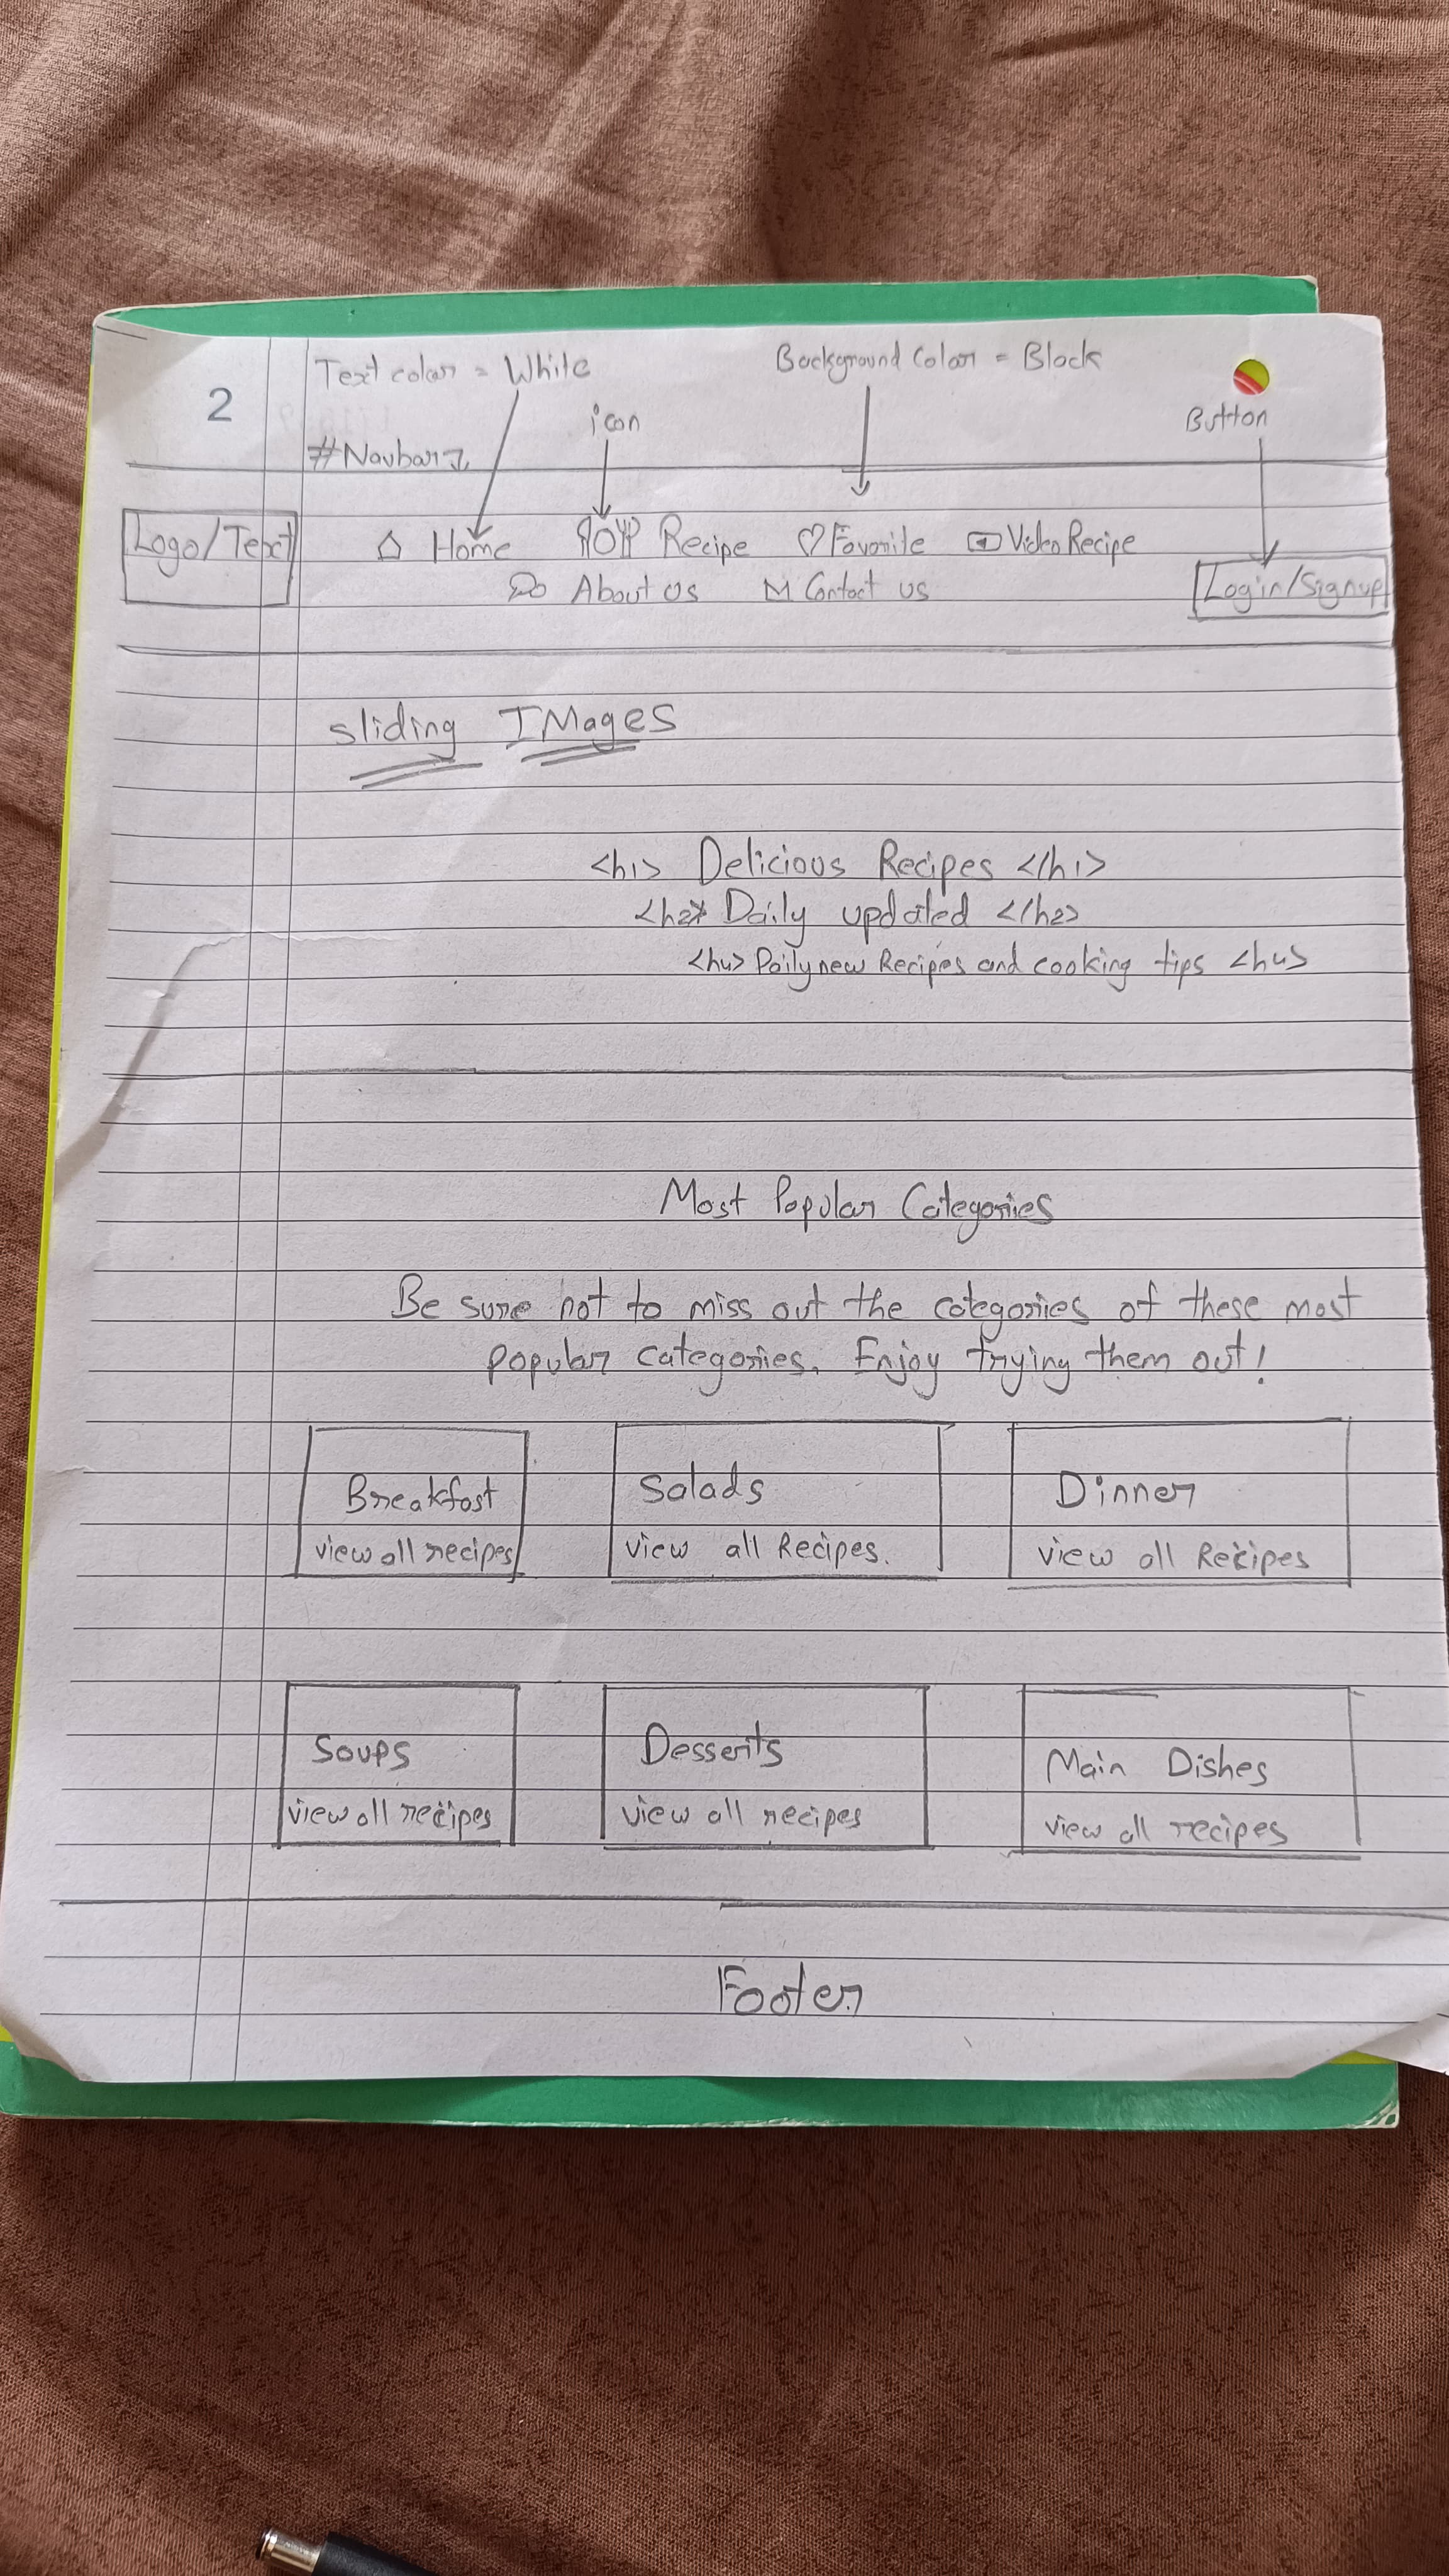 2
Text color = White
Background Color = Black
icon
Button
#Navbar
Logo/Text
Home
Recipe
Favorite
Video Recipe
About us
Contact us
Login/Signup
sliding IMages
<h1> Delicious Recipes </h1>
<h2> Daily updated </h2>
<h4> Daily new Recipes and cooking tips <h4>
Most Popular Categories
Be sure not to miss out the categories of these most
popular categories. Enjoy trying them out!
Breakfast
Salads
Dinner
view all recipes
view all Recipes.
view all Recipes
Soups
Desserts
Main Dishes
view all recipes
view all recipes
view all recipes
Footer